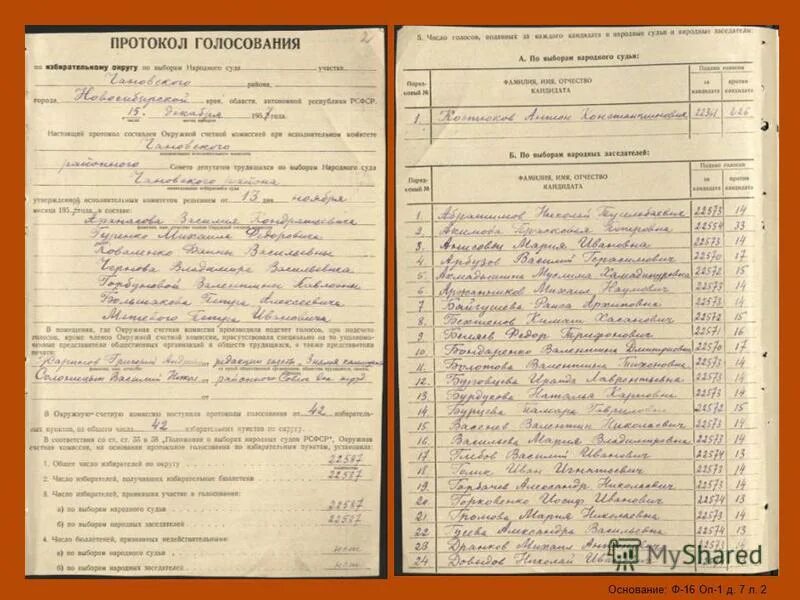 2
ПРОТОКОЛ ГОЛОСОВАНИЯ
по избирательному округу по выборам Народного суда участка
Чановского района,
города Новосибирской края, области, автономной республики РСФСР
15 декабря 1957 года.
Настоящий протокол составлен Окружной счетной комиссией при исполнительном комитете
Чановского
районного Совета депутатов трудящихся по выборам Народного суда
Чановского района
утвержденной исполнительным комитетом решением от 13 ноября
месяца 195 года, в составе:
Василия Кондратьевича
Гуренко Михаила Федоровича
Коваленко Васильевны
Чернова Владимира Васильевича
Горбуновой Валентины Павловны
Большакова Петра Алексеевича
Петра Ивановича
В помещении, где Окружная счетная комиссия производила подсчет голосов, при подсчете
голосов, кроме членов Окружной счетной комиссии, присутствовали специально на то уполномо-
ченные представители общественных организаций и обществ трудящихся, а также представители
печати:
Григорий редакции газеты
Василий от районного
В Окружную счетную комиссию поступили протоколы голосования от 42 избиратель-
ных пунктов, из общего числа 42 избирательных пунктов по округу.
В соответствии со ст. ст. 35 и 38 „Положения о выборах народных судов РСФСР", Окружная
счетная комиссия, на основании протоколов голосования по избирательным пунктам, установила:
1. Общее число избирателей по округу 22587
2. Число избирателей, получивших избирательные бюллетени 22587
3. Число избирателей, принявших участие в голосовании:
а) по выборам народного судьи 22587
б) по выборам народных заседателей 22587
4. Число бюллетеней, признанных недействительными:
а) по выборам народного судьи нет
б) по выборам народных заседателей нет
5. Число голосов, поданных за каждого кандидата в народные судьи и народные заседатели:
А. По выборам народного судьи:
Поряд-ковый № ФАМИЛИЯ, ИМЯ, ОТЧЕСТВО КАНДИДАТА Подано голосов за кандидата против кандидата
1 Костюков Антон Константинович 22361 226
Б. По выборам народных заседателей:
Поряд-ковый № ФАМИЛИЯ, ИМЯ, ОТЧЕСТВО КАНДИДАТА Подано голосов за кандидата против кандидата
1. Абрашимов Николай 22573 14
2 Акимова Прасковья 22554 33
3. Мария Ивановна 22573 14
4 Арбузов Василий Герасимович 22570 17
5 Муслима 22572 15
6 Аржанников Михаил Наумович 22573 14
7 Байгушева Раиса Архиповна 22573 14
8 Хасанович 22572 15
9 Беляев Федор Трифонович 22571 16
10. Бондаренко Валентина Дмитриевна 22570 17
11. Болотова Валентина Тихоновна 22573 14
12. Лаврентьевна 22573 14
13 Бурдукова Наталья Карповна 22573 14
14 Бурцева Тамара Гавриловна 22572 15
15 Валентин Николаевич 22573 14
16 Васильева Мария Владимировна 22573 14
17 Глебов Василий Иванович 22573 14
18 Иван Игнатьевич 22573 14
19 Горбачев Александр Николаевич 22573 14
20. Горковенко Иосиф Иванович 22574 13
21. Громова Мария Николаевна 22573 14
22 Гусева Александра Васильевна 22574 13
23 Дранков Михаил
24 Давыдов Николай
MyShared
Основание: Ф-16 Оп-1 д. 7 л. 2